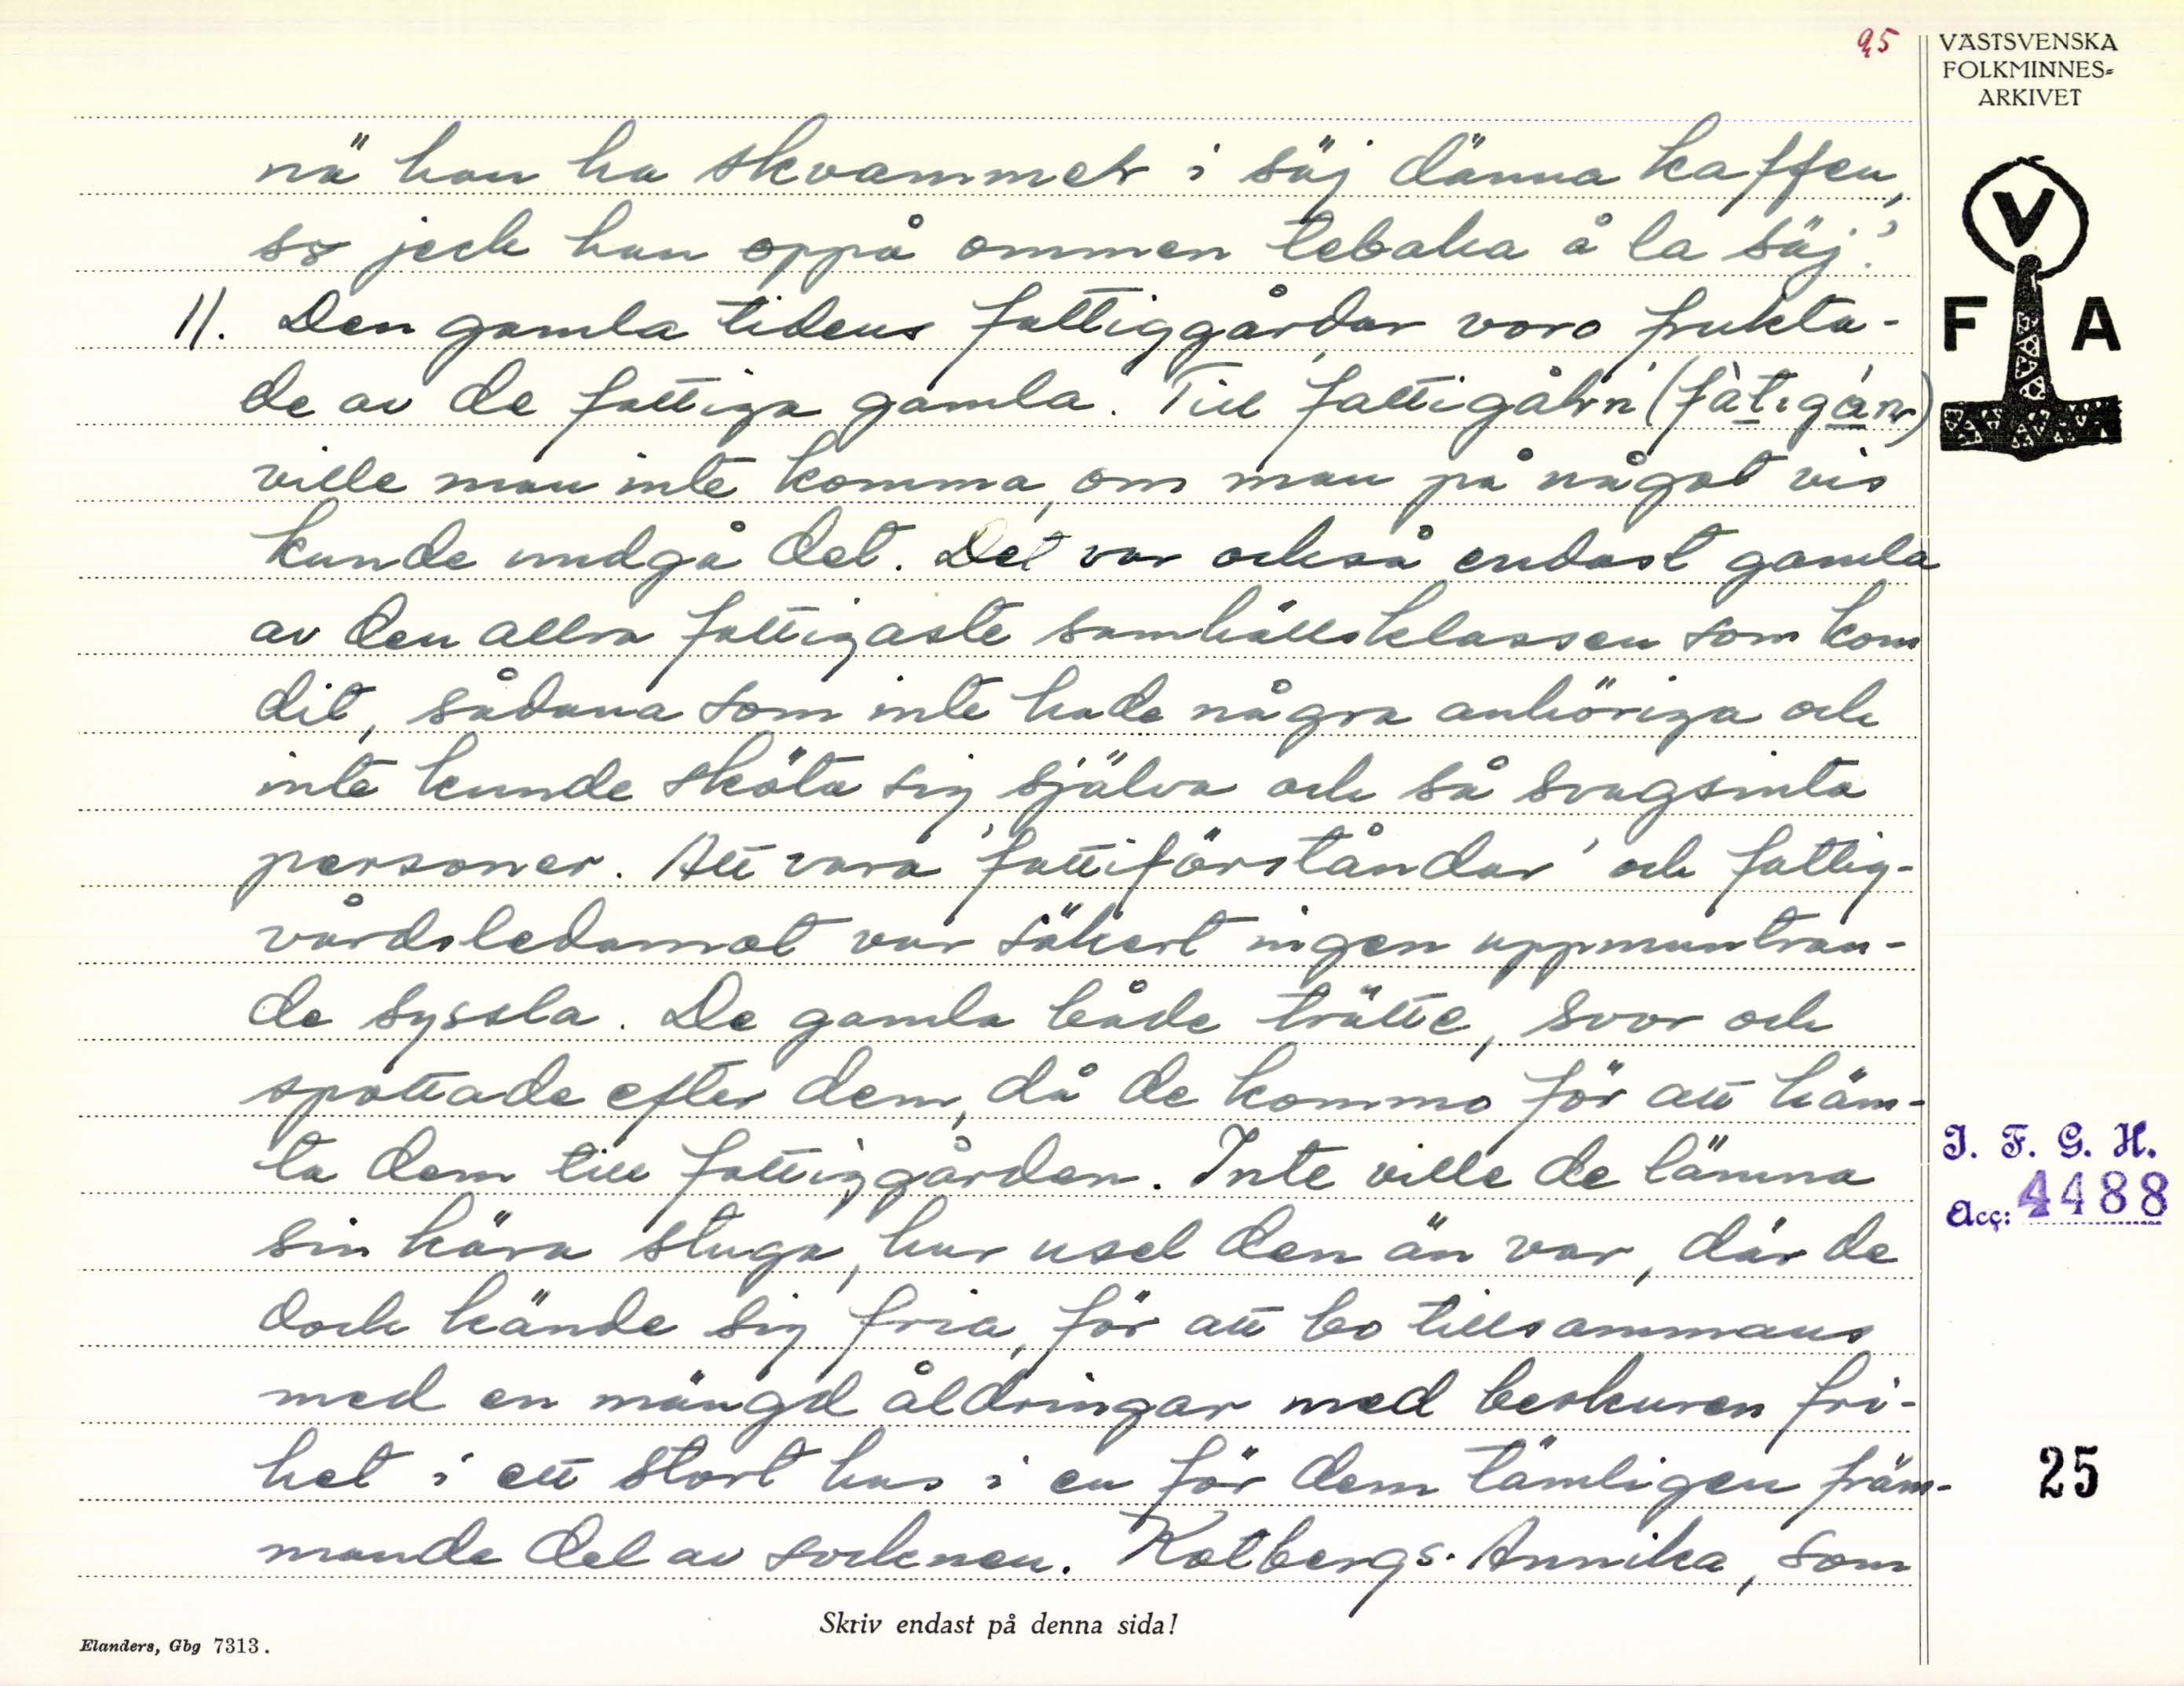 95
VÄSTSVENSKA
FOLKMINNES=
ARKIVET
V
F A
nä han ha skvammet i säj dänna kaffen,
so jeck han oppå ommen tebaka å la säj.'
11. Den gamla tidens fattiggårdar voro frukta-
de av de fattiga gamla. Till 'fattigåln'
ville man inte komma, om man på något vis
kunde undgå det. Det var också endast gamla
av den allra fattigaste samhällsklassen som kom
dit, sådana som inte hade några anhöriga och
inte kunde sköta sig själva och så svagsinta
personer. Att vara 'fattiförståndar' och fattig-
vårdsledamot var säkert ingen uppmuntran-
de syssla. De gamla både trätte, svor och
spottade efter dem, då de kommo för att häm-
ta dem till fattiggården. Inte ville de lämna
sin kära stuga, hur usel den än var, där de
dock kände sig fria, för att bo tillsammans
med en mängd åldringar med beskuren fri-
het i ett stort hus i en för dem tämligen främ-
mande del av socknen. Kolbergs-Annika, som
I. F. G. H.
Acc: 4488
25
Skriv endast på denna sida!
Elanders, Gbg 7313.